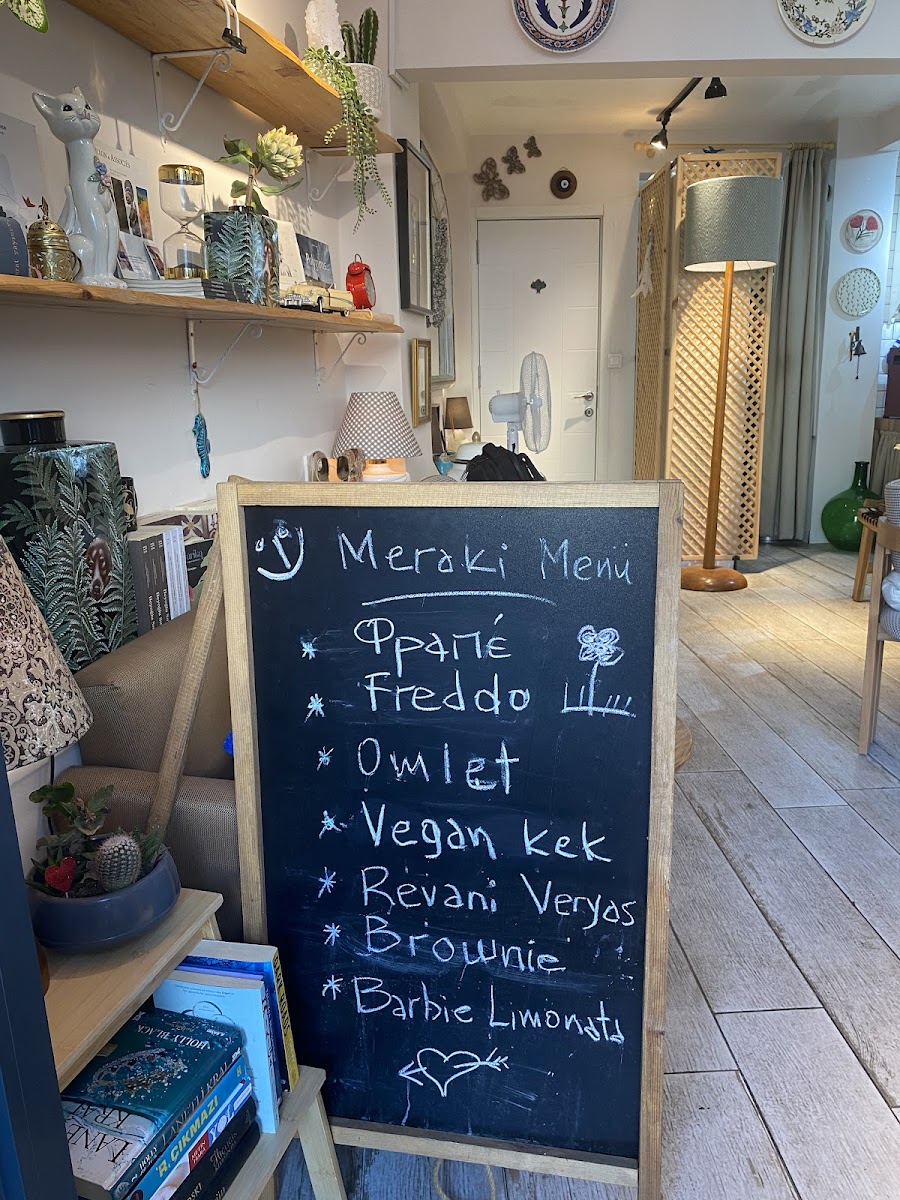 Meraki Menü
Φραπέ
Freddo
Omlet
Vegan Kek
Revani Veryas
Brownie
Barbie Limonata
HOLLY BLACK
R. ÇIKMAZI